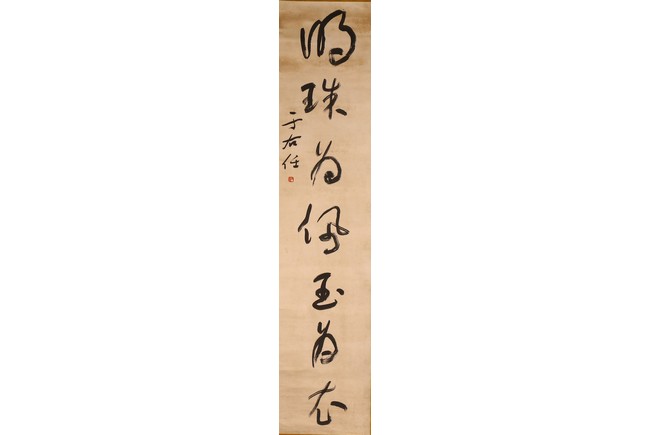 明珠为佩玉为衣
于右任